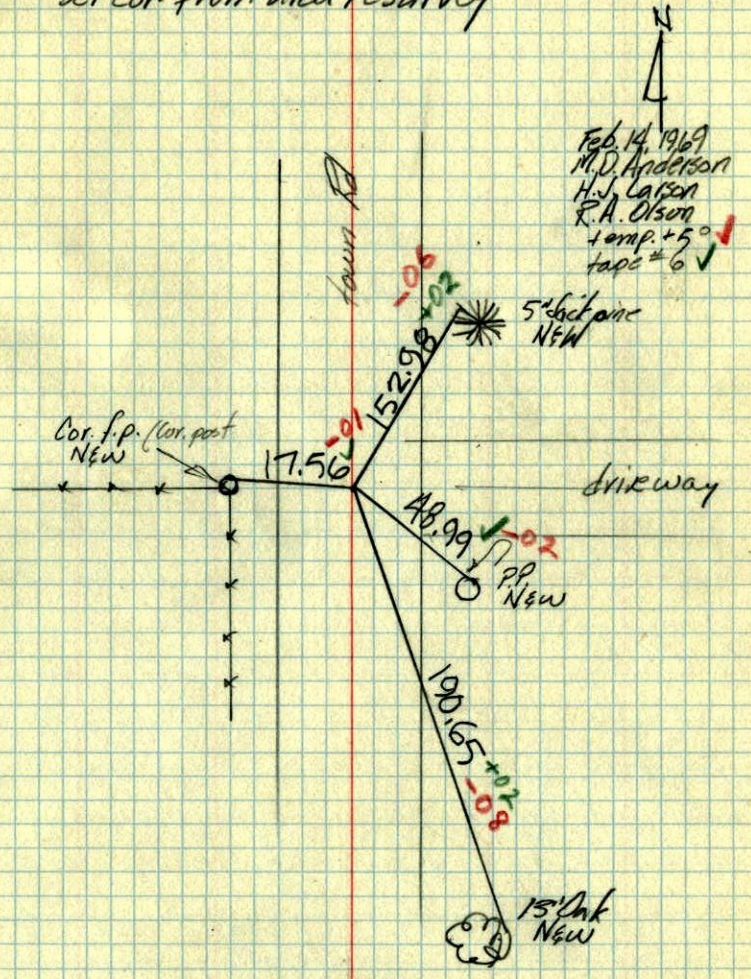 set cor. from
resurvey
N
Feb. 14, 1969
M.D. Anderson
H.J. Carson
R.A. Olson
temp. +5° ✓
tape #6 ✓
town Rd
-06
+02
152.98
5" Jack pine
N&W
Cor. f.p. (Cor. post
N&W
-01
17.56 ✓
driveway
48.99 ✓ -02
P.P.
N&W
190.65 +02
-08
Oak
N&W